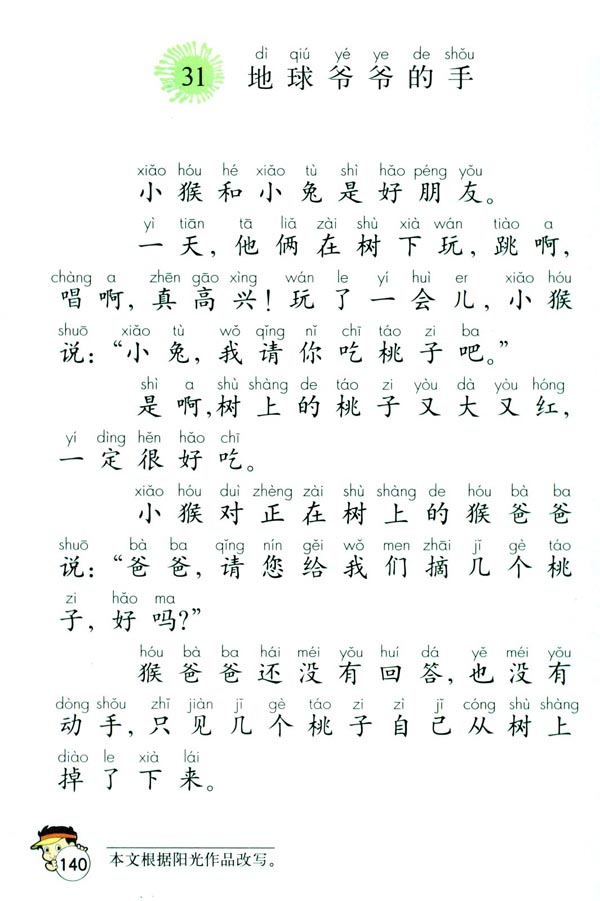 dì qiú yé ye de shǒu
31 地球爷爷的手
xiǎo hóu hé xiǎo tù shì hǎo péng yǒu
小猴和小兔是好朋友。
yì tiān tā liǎ zài shù xià wán tiào a
一天，他俩在树下玩，跳啊，
chàng a zhēn gāo xìng wán le yí huì er xiǎo hóu
唱啊，真高兴！玩了一会儿，小猴
shuō xiǎo tù wǒ qǐng nǐ chī táo zi ba
说：“小兔，我请你吃桃子吧。”
shì a shù shàng de táo zi yòu dà yòu hóng
是啊，树上的桃子又大又红，
yí dìng hěn hǎo chī
一定很好吃。
xiǎo hóu duì zhèng zài shù shàng de hóu bà ba
小猴对正在树上的猴爸爸
shuō bà ba qǐng nín gěi wǒ men zhāi jǐ gè táo
说：“爸爸，请您给我们摘几个桃
zi hǎo ma
子，好吗？”
hóu bà ba hái méi yǒu huí dá yě méi yǒu
猴爸爸还没有回答，也没有
dòng shǒu zhǐ jiàn jǐ gè táo zi zì jǐ cóng shù shàng
动手，只见几个桃子自己从树上
diào le xià lái
掉了下来。
140 本文根据阳光作品改写。